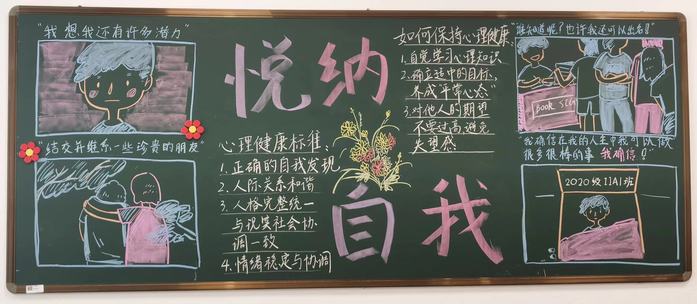 "我想我还有许多潜力"
"结交并维系一些珍贵的朋友"
悦纳
自我
心理健康标准:
1.正确的自我发现
2.人际关系和谐
3.人格完整统一
与说笑社会协
调一致
4.情绪稳定与协调
如何保持心理健康:
1.自觉学习心理知识
2.确立适中的目标,
养成平常心态"
3.对他人的期望
不要过高避免
失望感
"谁知道呢?也许我还可以出名!"
BOOK
我确信在我的人生中我可以做
很多很棒的事 我确信!
2020级11A1班